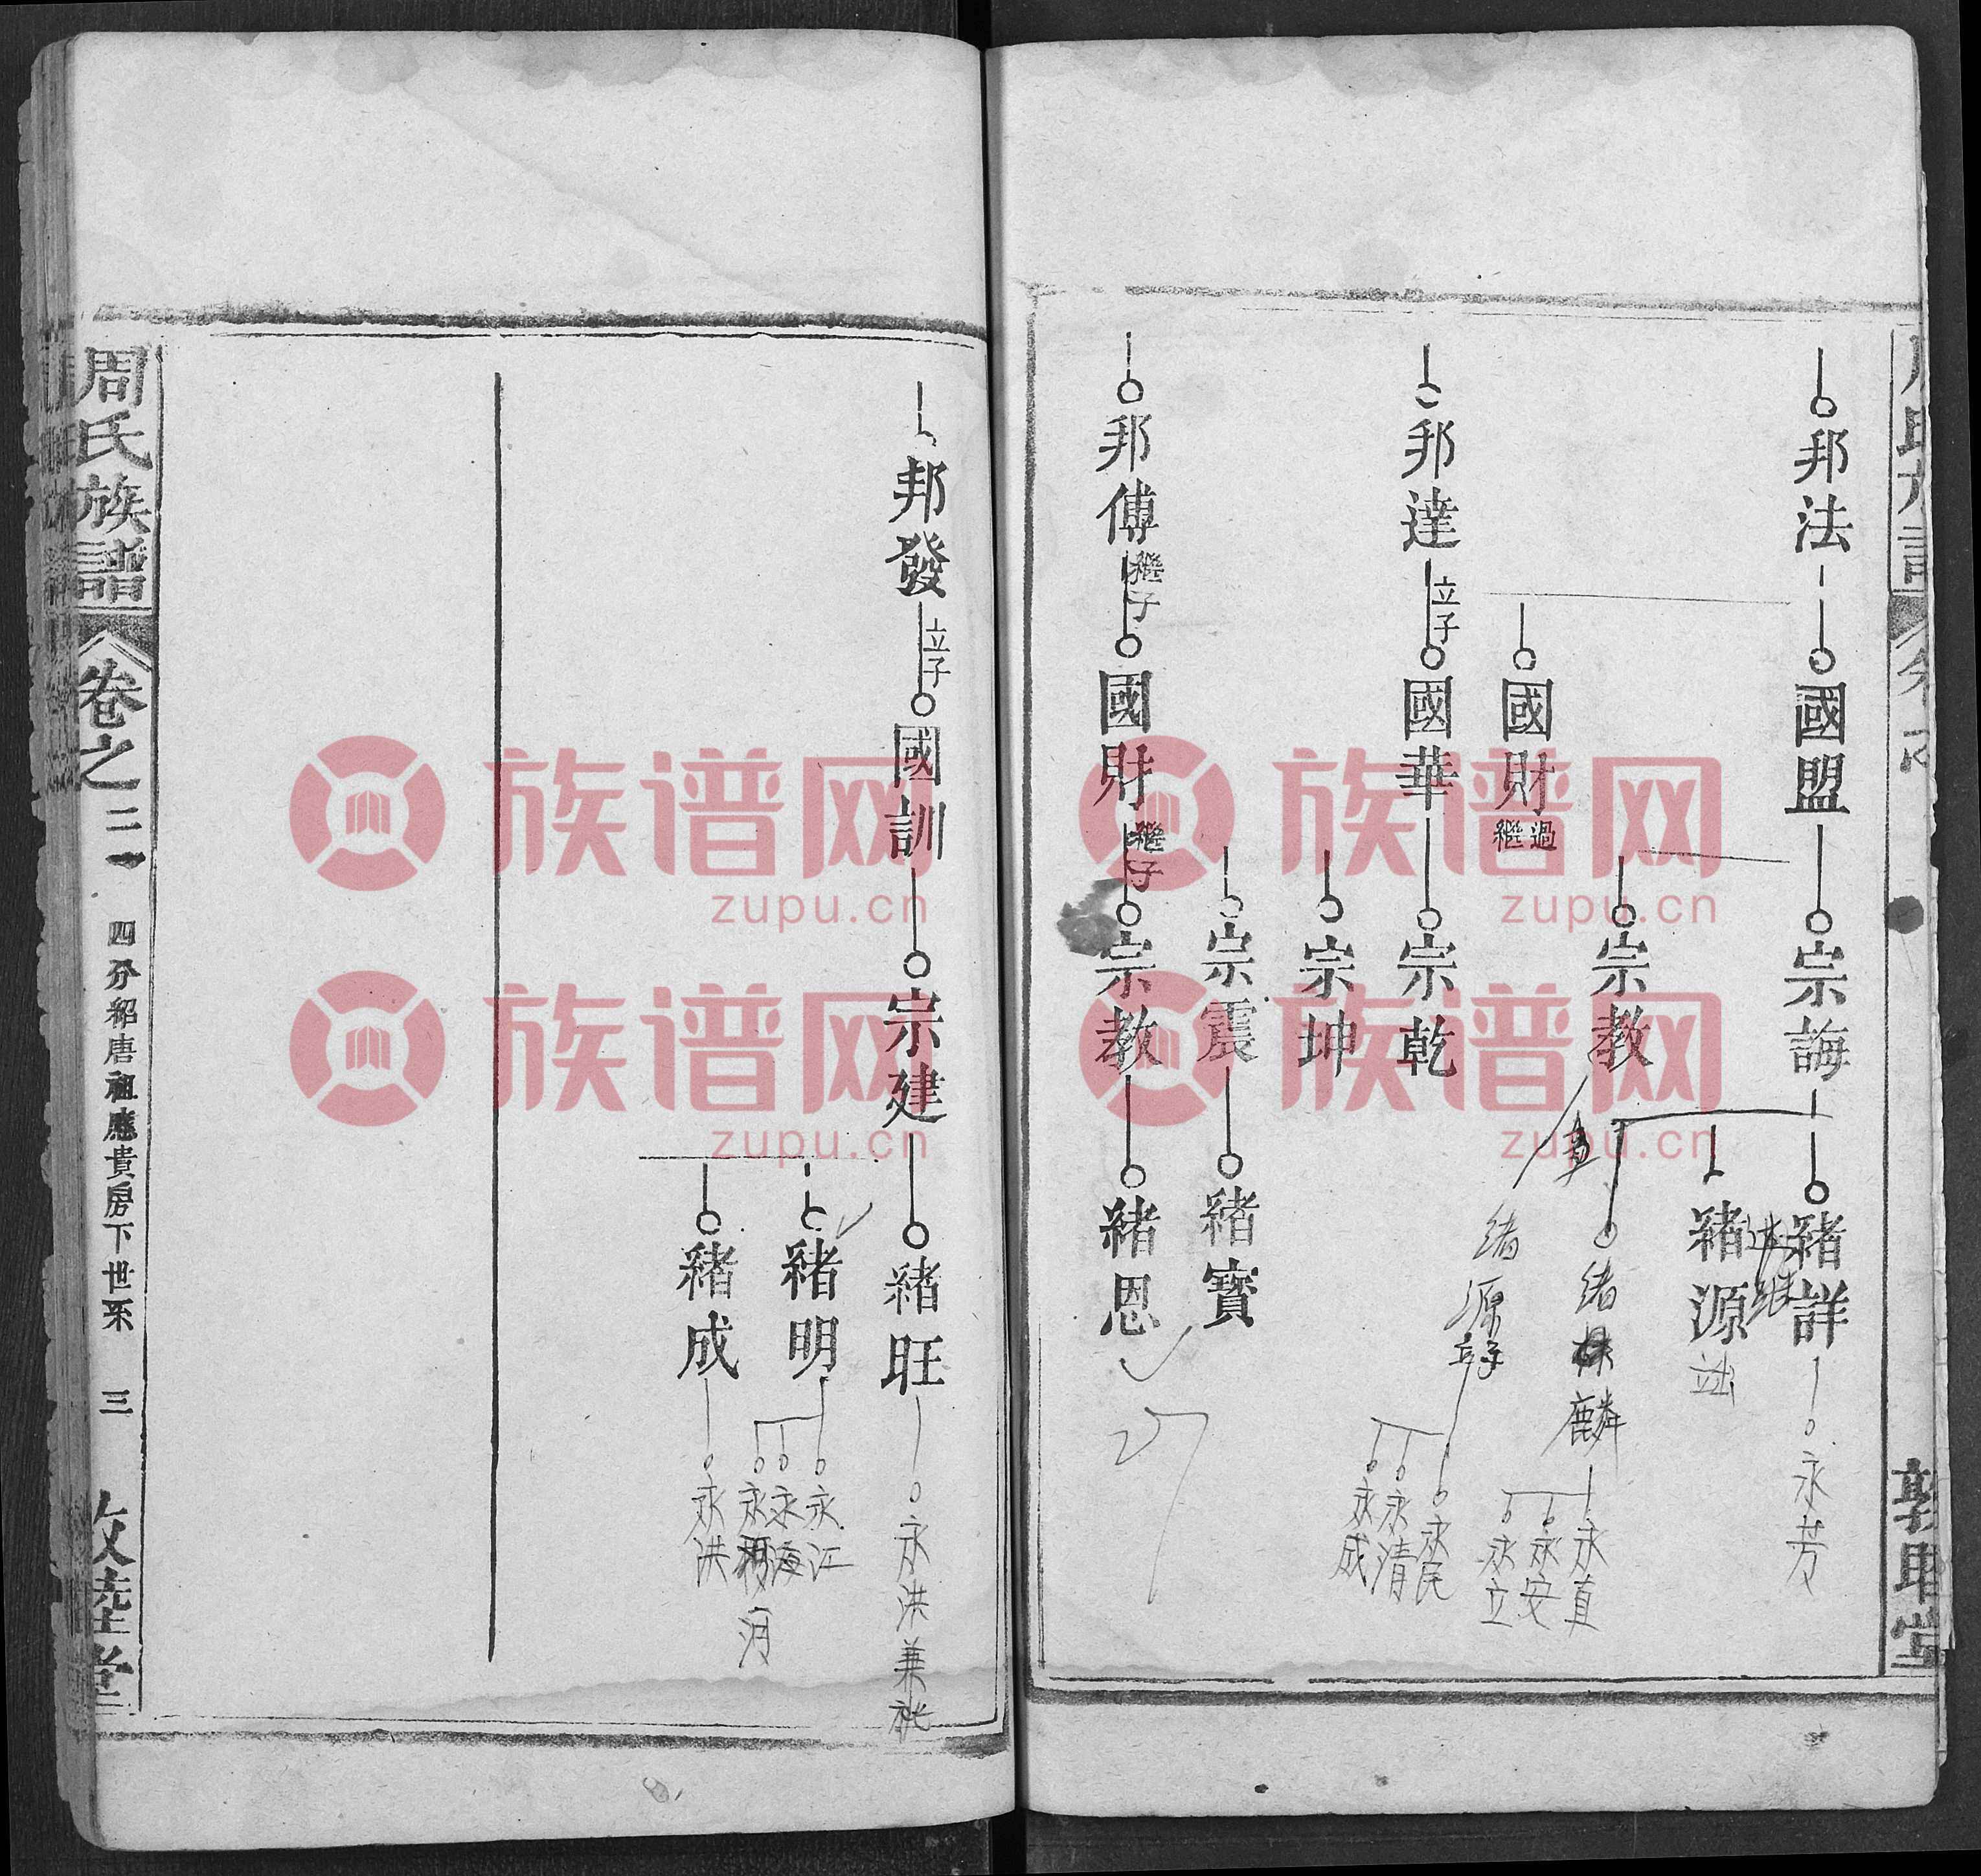 邦法
國盟
宗誨
緒詳
永芳
緒源
緒麟
永直
永安
永立
國財
過繼
宗教
緒源
永民
永清
永成
邦達
立子
國華
宗乾
宗坤
宗震
緒寶
邦傅
繼子
國財
繼子
宗教
緒恩
敦睦堂
邦發
立子
國訓
宗建
緒旺
永洪兼祧
緒明
永江
永海
永河
緒成
永洪
周氏族譜
卷之二一
四分紹唐祖應貴房下世系
三
敦睦堂
族谱网
zupu.cn
族谱网
zupu.cn
族谱网
zupu.cn
族谱网
zupu.cn